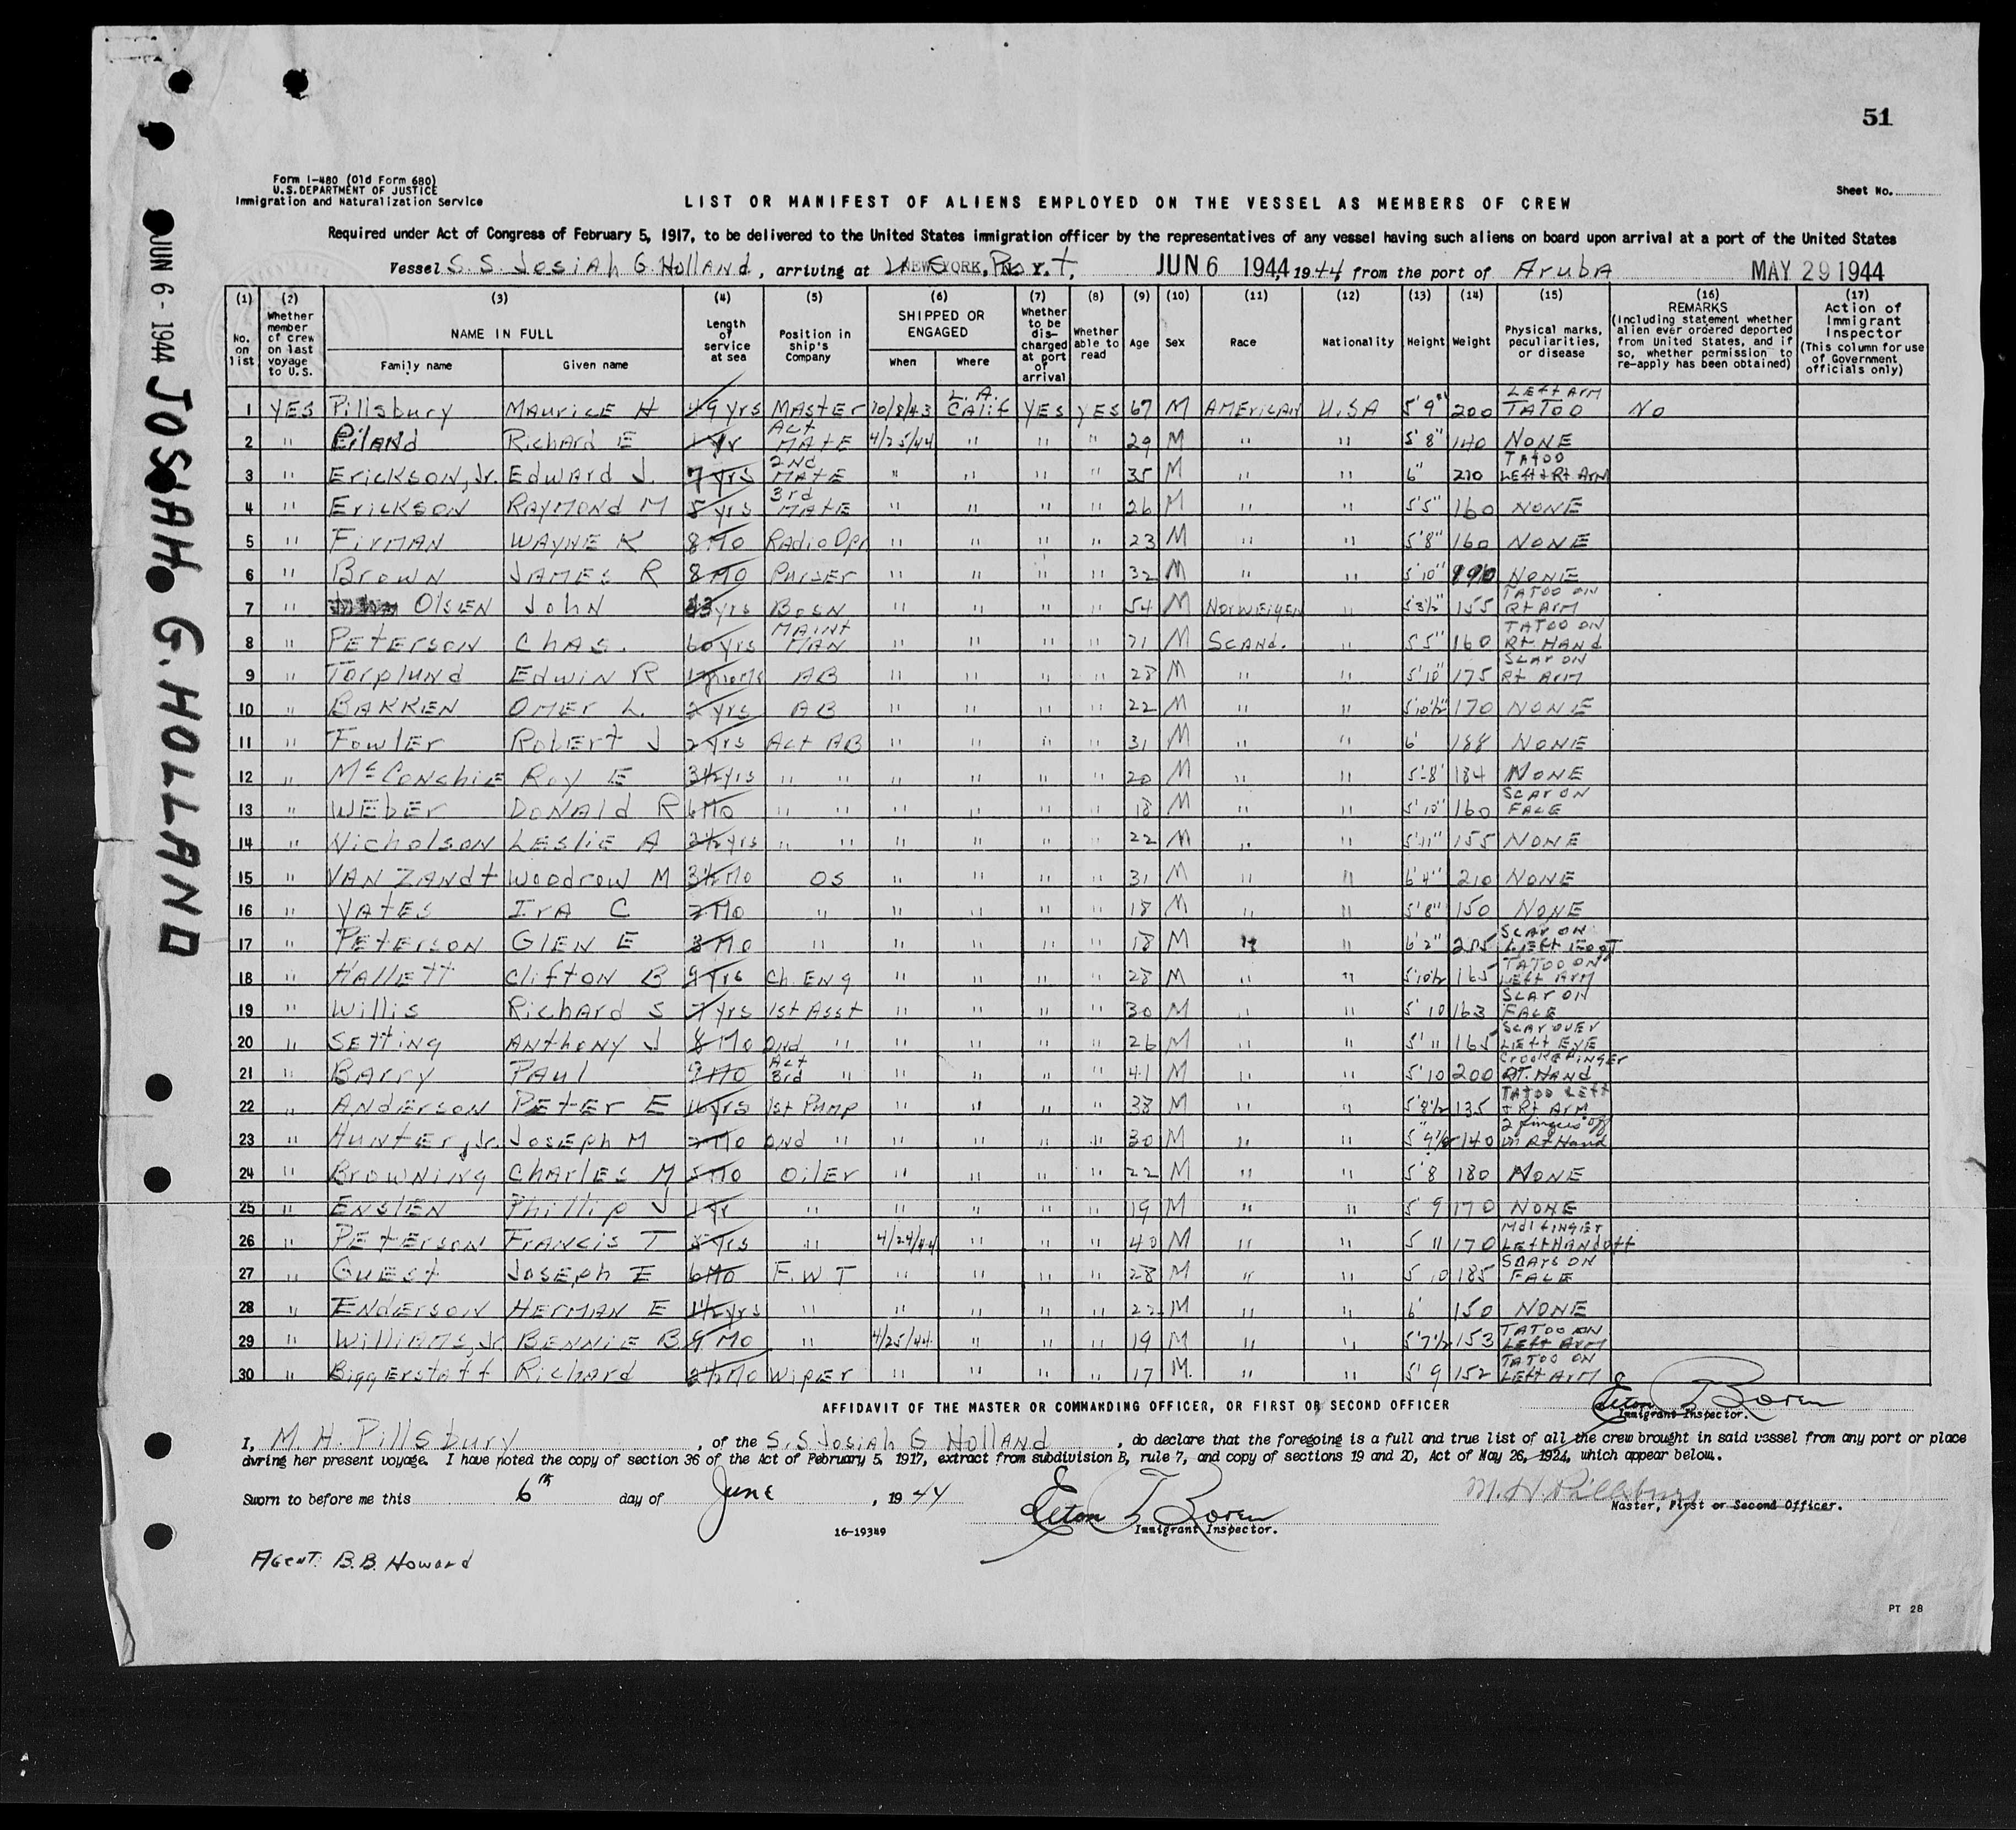 51
Form I-480 (Old Form 680)
U.S. DEPARTMENT OF JUSTICE
Immigration and Naturalization Service
Sheet No.
LIST OR MANIFEST OF ALIENS EMPLOYED ON THE VESSEL AS MEMBERS OF CREW
Required under Act of Congress of February 5, 1917, to be delivered to the United States immigration officer by the representatives of any vessel having such aliens on board upon arrival at a port of the United States
Vessel S.S. Josiah G. Holland, arriving at NEW YORK, N. Y. U S Port, JUN 6 1944, 1944, from the port of Aruba MAY 29 1944
(1) (2) (3) (4) (5) (6) (7) (8) (9) (10) (11) (12) (13) (14) (15) (16) (17)
No. on list
Whether member of crew on last voyage to U.S.
NAME IN FULL
Family name
Given name
Length of service at sea
Position in ship's Company
SHIPPED OR ENGAGED
When
Where
Whether to be discharged at port of arrival
Whether able to read
Age
Sex
Race
Nationality
Height
Weight
Physical marks, peculiarities, or disease
REMARKS (Including statement whether alien ever ordered deported from United States, and if so, whether permission to re-apply has been obtained)
Action of Immigrant Inspector (This column for use of Government officials only)
1 YES Pillsbury Maurice H 49 yrs Master 10/8/43 L.A. Calif YES YES 67 M American U.S.A 5'9" 200 Left Arm Tatoo No
2 " Eiland Richard E 1 yr Act Mate 4/25/44 " " " 29 M " " 5'8" 140 None
3 " Erickson, Jr. Edward J. 7 yrs 2nd Mate " " " " 35 M " " 6" 210 Tatoo Left & Rt Arm
4 " Erickson Raymond M 5 yrs 3rd Mate " " " " 26 M " " 5'5" 160 None
5 " Firman Wayne K 8 Mo Radio Opr " " " " 23 M " " 5'8" 160 None
6 " Brown James R 8 Mo Purser " " " " 32 M " " 5'10" 190 None
7 " Olsen John yrs Bosn " " " " 54 M Norweigen " 5'3½" 155 Tatoo on Rt Arm
8 " Peterson Chas. 60 yrs Maint Man " " " " 71 M Scand. " 5'5" 160 Tatoo on Rt Hand
9 " Torplund Edwin R AB " " " " 28 M " " 5'10" 175 Scar on Rt Arm
10 " Bakken Omer L. 2 yrs AB " " " " 22 M " " 5'10½" 170 None
11 " Fowler Robert J 2 yrs Act AB " " " " 31 M " " 6' 188 None
12 " McConchie Roy E 3½ yrs " " " " " " 20 M " " 5'8" 184 None
13 " Weber Donald R 6 Mo " " " " " " 18 M " " 5'10" 160 Scar on Face
14 " Nicholson Leslie A 2½ yrs " " " " " " 22 M " " 5'11" 155 None
15 " Van Zandt Woodrow M 3½ Mo OS " " " " 31 M " " 6'4" 210 None
16 " Yates Ira C 2 Mo " " " " " 18 M " " 5'8" 150 None
17 " Peterson Glen E 3 Mo " " " " " 18 M " " 6'2" 205 Scar on Left Foot
18 " Hallett Clifton B 9 yrs Ch. Eng " " " " 28 M " " 5'10½ 165 Tatoo on Left Arm
19 " Willis Richard S 7 yrs 1st Asst " " " " 30 M " " 5'10 163 Scar on Face
20 " Setting Anthony J 8 Mo 2nd " " " " " 26 M " " 5'11 165 Scar over Left Eye
21 " Barry Paul 9 Mo Act 3rd " " " " " 41 M " " 5'10 200 Crooke Finger Rt. Hand
22 " Anderson Peter E 16 yrs 1st Pump " " " " 38 M " " 5'8½ 135 Tatoo Left & Rt Arm
23 " Hunter, Jr. Joseph M 2 Mo 2nd " " " " " 30 M " " 5'9½ 140 2 fingers off on Rt Hand
24 " Browning Charles M 5 Mo Oiler " " " " 22 M " " 5'8 180 None
25 " Enslen Phillip J 1 yr " " " " " 19 M " " 5 9 170 None
26 " Peterson Francis T 5 yrs " 4/24/44 " " " 40 M " " 5 11 170 Mdl finger Left Hand off
27 " Guest Joseph E 6 Mo F.W T " " " " 28 M " " 5 10 185 Scars on Face
28 " Enderson Herman E 1½ yrs " " " " " 22 M " " 6' 150 None
29 " Williams, Jr Bennie B 9 Mo " 4/25/44 " " " 19 M " " 5'7½ 153 Tatoo on Left Arm
30 " Biggerstaff Richard 2½ Mo Wiper " " " " 17 M. " " 5'9 152 Tatoo on Left Arm
AFFIDAVIT OF THE MASTER OR COMMANDING OFFICER, OR FIRST OR SECOND OFFICER
Elton T Boren
Immigrant Inspector.
I, M. H. Pillsbury, of the S.S Josiah G Holland, do declare that the foregoing is a full and true list of all the crew brought in said vessel from any port or place
during her present voyage. I have noted the copy of section 36 of the Act of February 5, 1917, extract from subdivision B, rule 7, and copy of sections 19 and 20, Act of May 26, 1924, which appear below.
Sworn to before me this 6th day of June, 1944
Elton T Boren
Immigrant Inspector.
M. H. Pillsbury
Master, First or Second Officer.
16-19349
Agent: B.B. Howard
PT 28
JUN 6 - 1944 JOSIAH G. HOLLAND